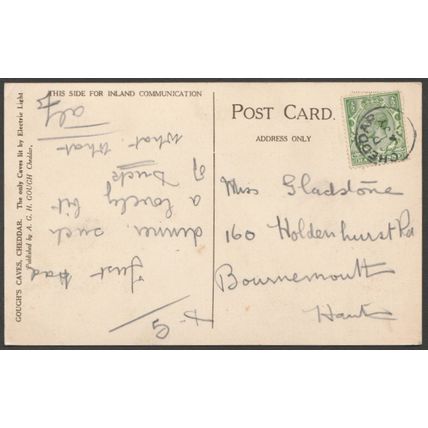 GOUGH'S CAVES, CHEDDAR. The only Caves lit by Electric Light
Published by A. G. H. GOUGH Cheddar.
THIS SIDE FOR INLAND COMMUNICATION
Just had
dinner. such
a lovely bit
of Duck
what. what.
POST CARD.
ADDRESS ONLY
CHEDDAR
Miss Gladstone
160 Holdenhurst Rd
Bournemouth
Hants